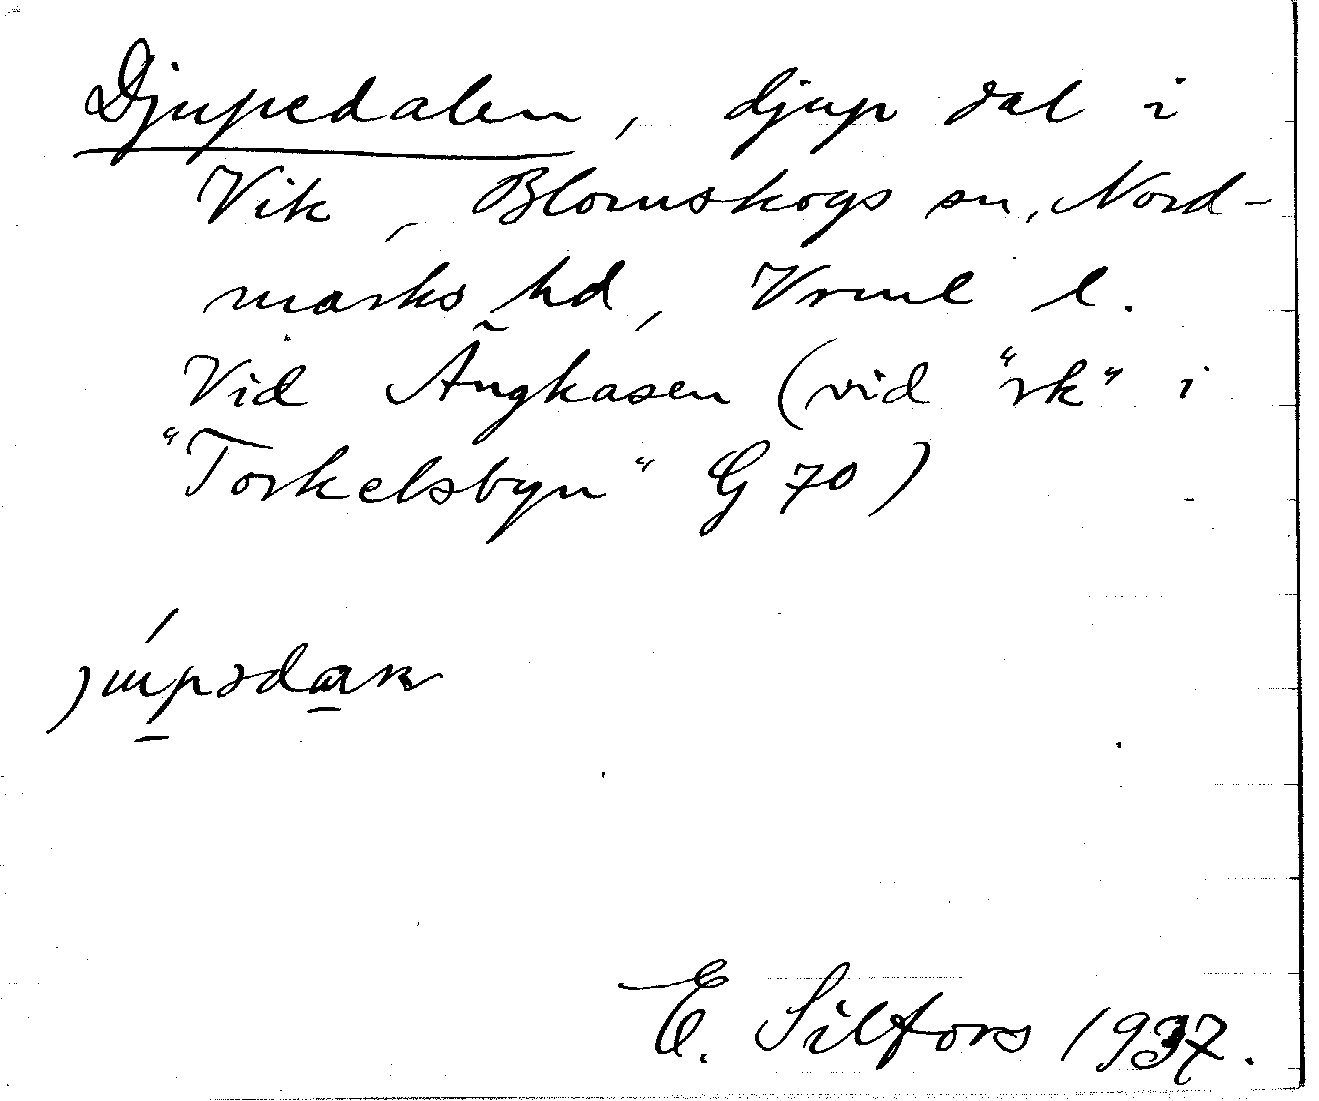 Djupedalen, djup dal i
Vik, Blomskogs sn, Nord-
marks hd, Vrml l.
Vid Ängkasen (vid "rk" i
"Torkelsbyn" G 70)
E. Silfors 1937.